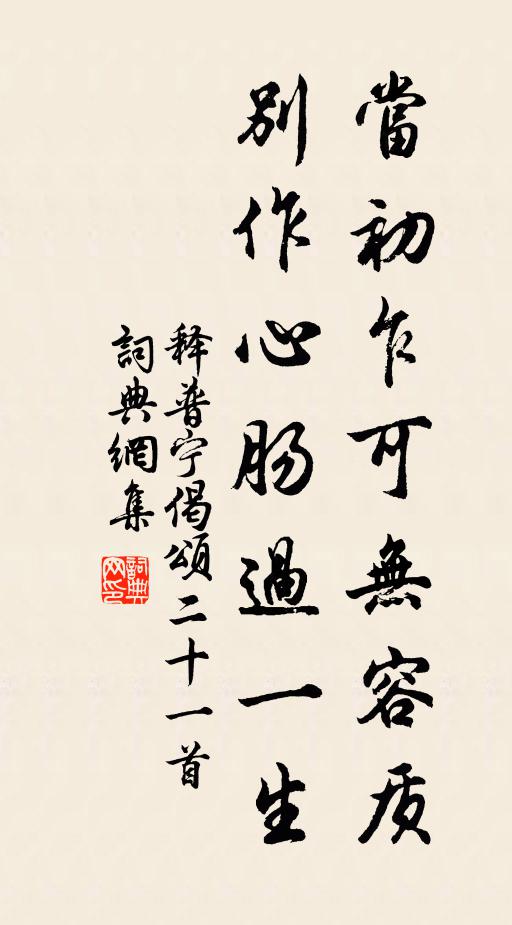 當初乍可無容质
别作心肠過一生
释普宁偈頌二十一首
詞典網集
詞典网印